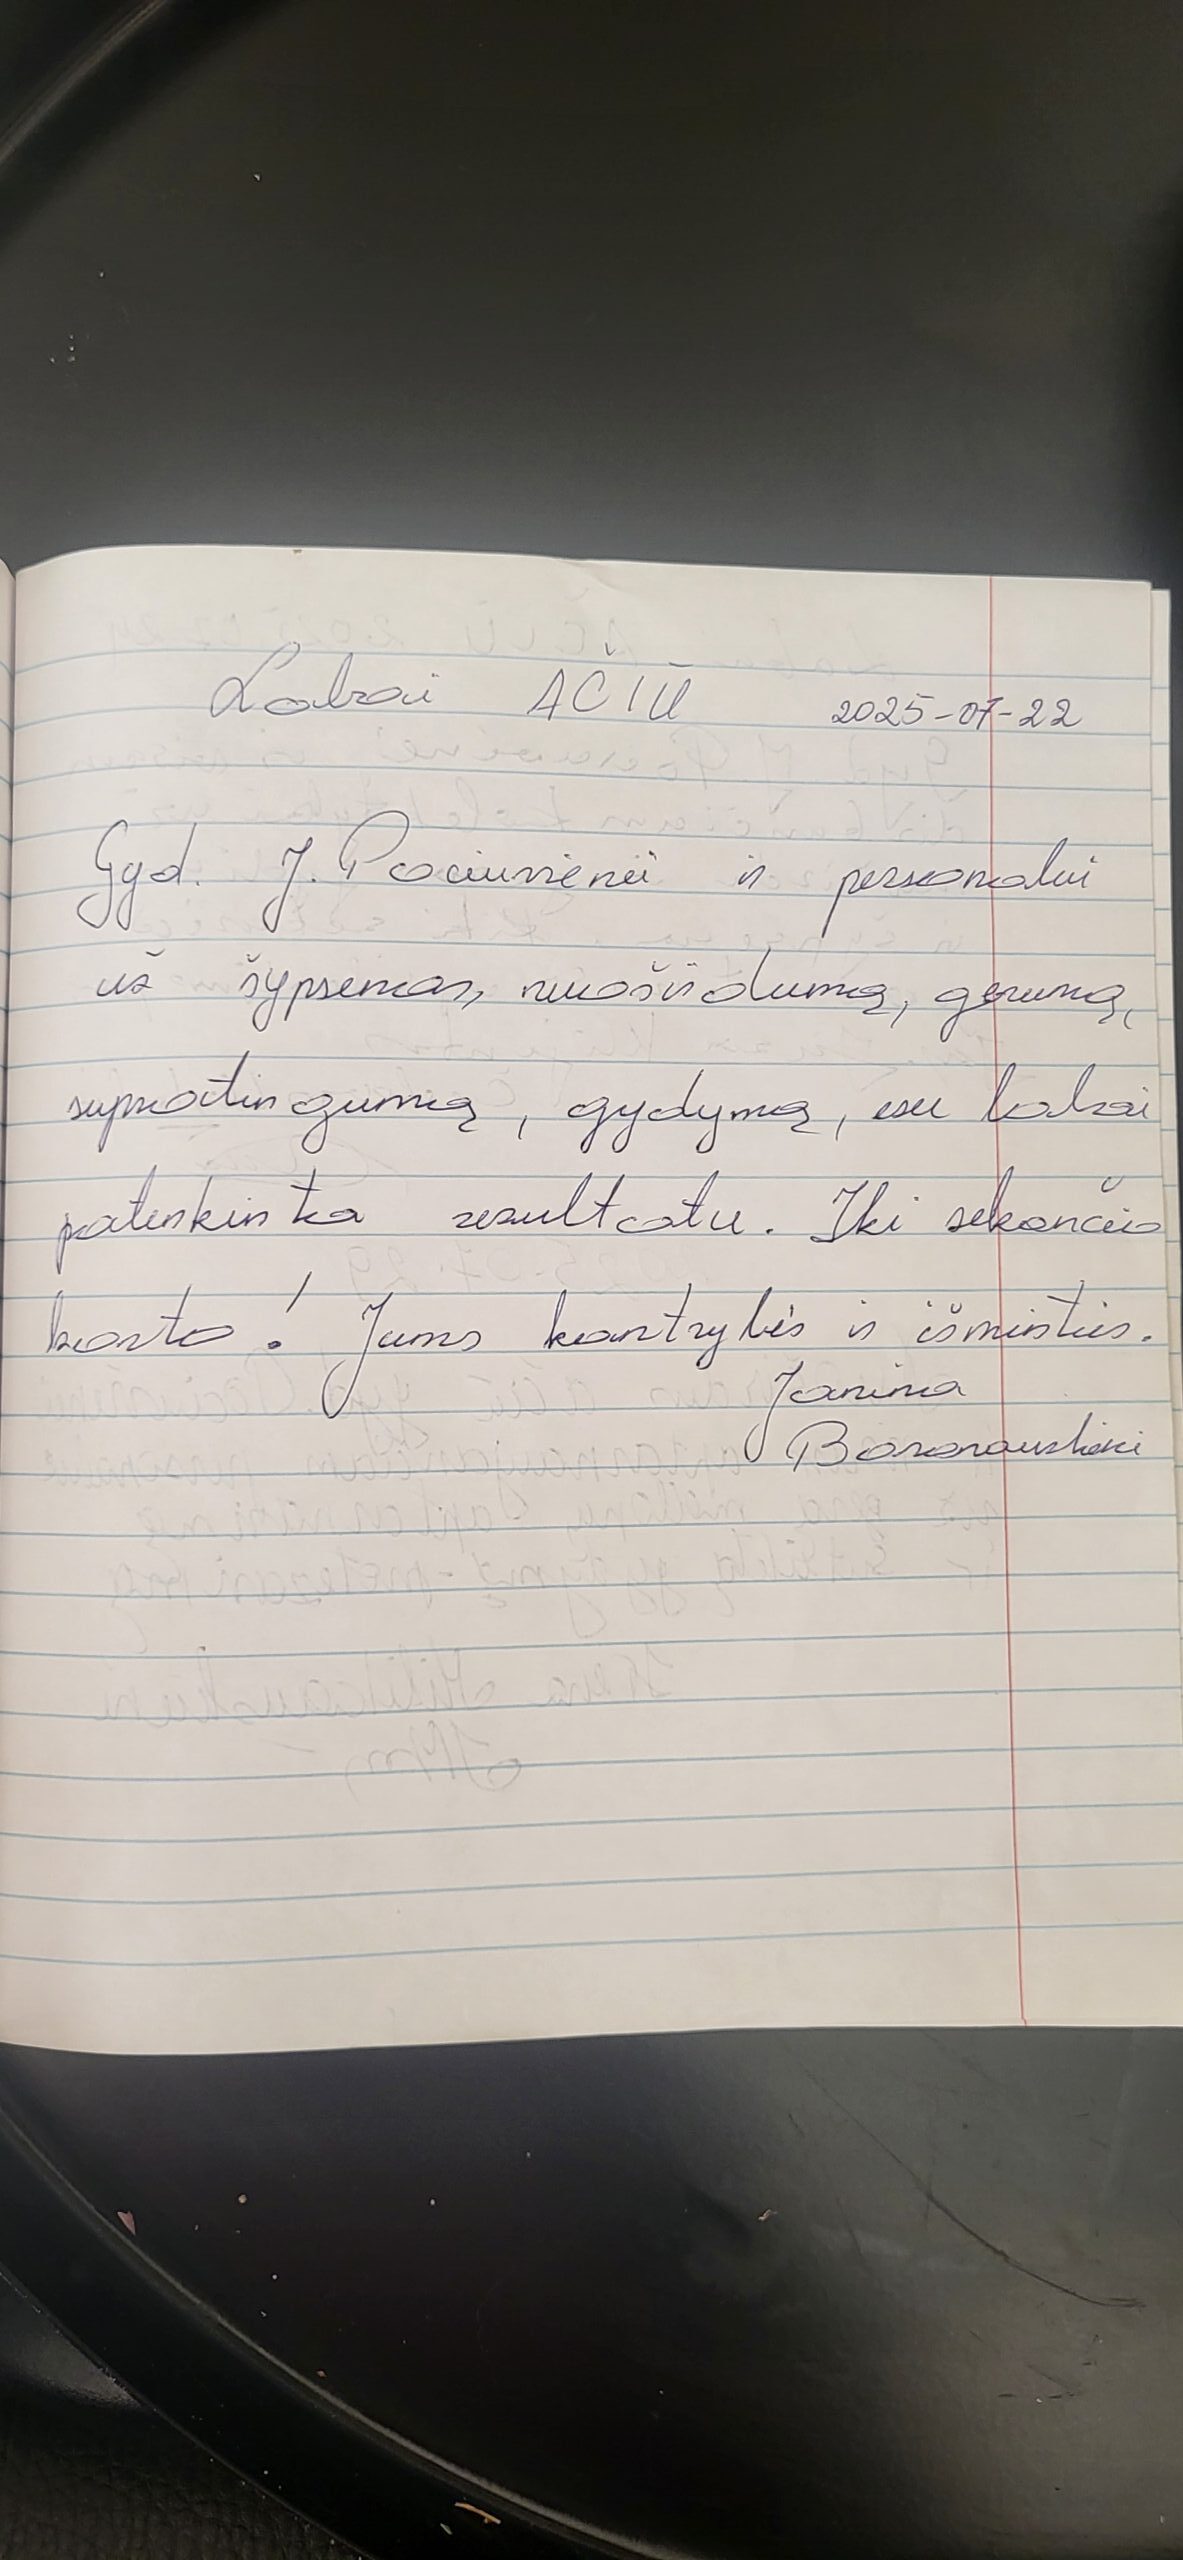 Labai AČIŪ 2025-07-22
Gyd. J. Pociuvienei ir personalui
už šypsenas, nuoširdumą, gerumą,
supratingumą, gydymą, esu labai
patenkinta rezultatu. Iki sekančio
karto! Jums kantrybės ir išminties.
Janina